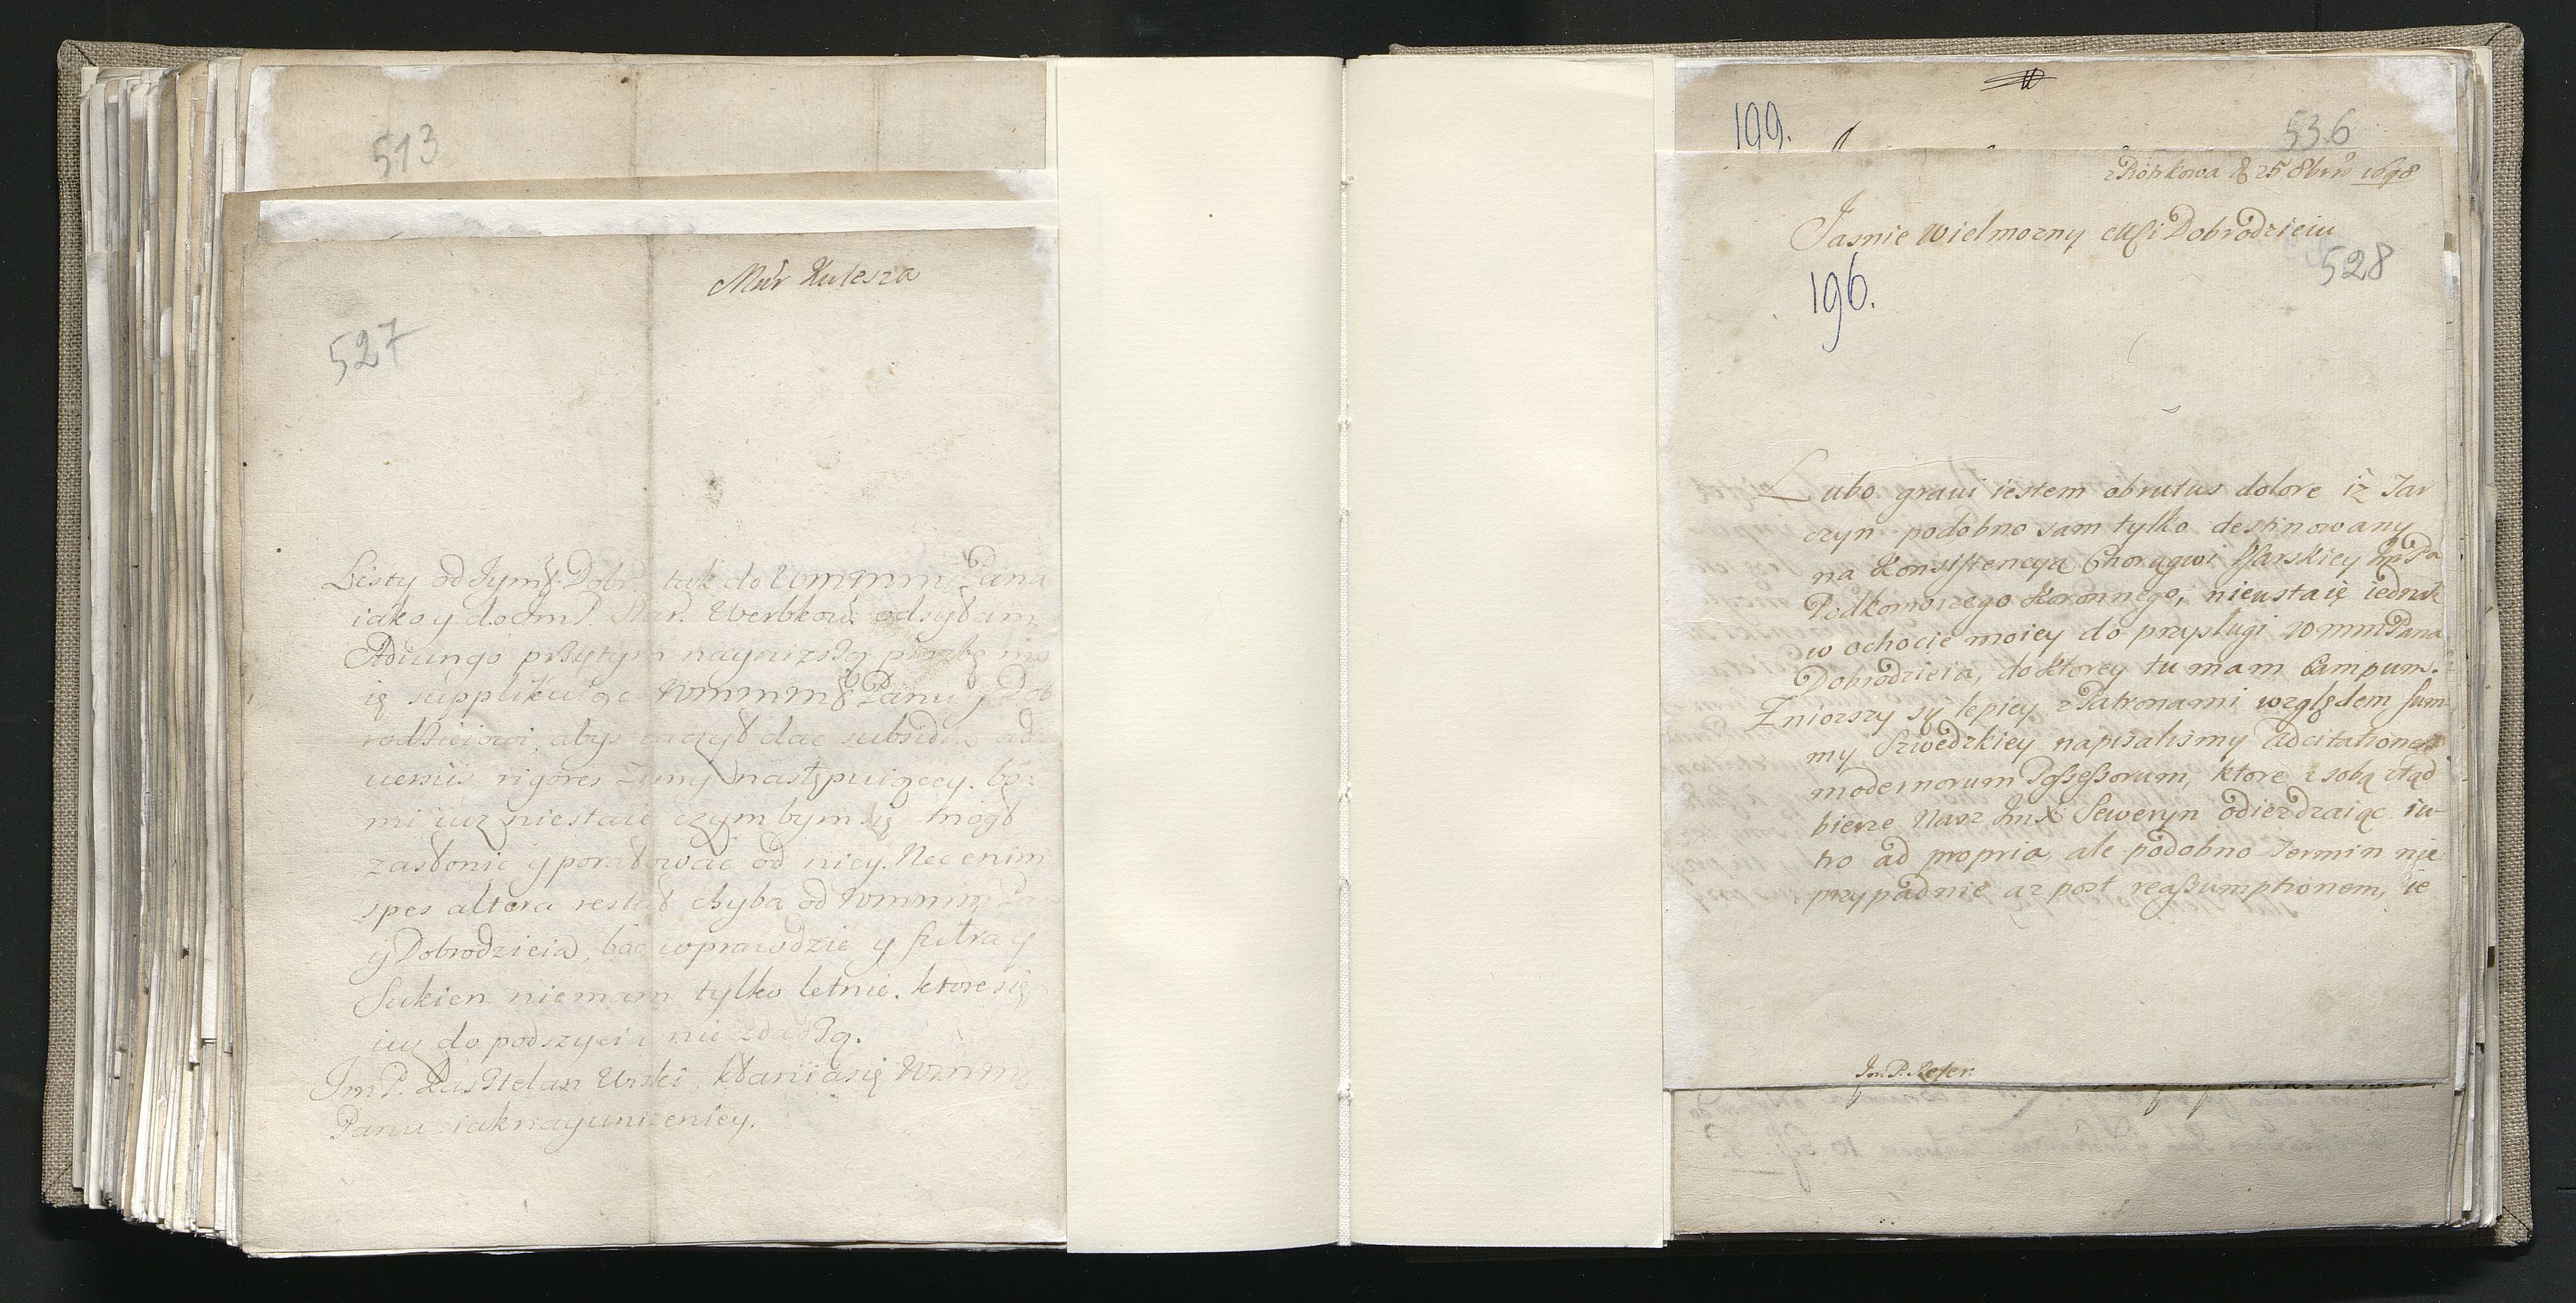 513
Mür Kulesza
527
Listy od Jym Dobr. tak do Wmmm Pana
iako y do Jm P. Star. Werbkow. odsyłam
Adiungo przytym naynizszą proźbę mo
ię supplikuiąc Wmmm Panu y Dob
rodzieiowi, abyś raczył dac subsidia ad
uersus rigores Zimy następuiącey. bo
mi iuz niestaie czym bym się mogł
zasłonic y poratowac od niey. Nec enim
spes altera restat chyba od Wmmm Pa
y Dobrodzieia, bac wprawdzie y futra y
Sukien niemam tylko letnie. ktore się
iuz do podszycia nie zdadzą.
Jm P. Kasztelan Urski, kłania się Wmm
Panu iak nayunizeniey.
199.
536
z Piotrkowa d 25 8bris 1698
Jasnie Wielmozny Mći Dobrodzieiu
196.
528
Lubo graui iestem obrutus dolore iż Tar
czyn podobno sam tylko destinowany
na Konsistencyą Chorągwi Usarskiey Jm Pa
Podkomorzego Koronnego, nieustaię iednak
w ochocie moiey do przysługi Wmm Pana
Dobrodzieia, do ktorey tu mam Campum.
Zniozszy sie lepiey z Patronami względem Sum
my Szwedzkiey napisalismy Adcitationes
modernorum Possessorum, ktore z sobą ztąd
bierze Nasz Jm X Seweryn odiezdzaiąc iu
tro ad propria, ale podobno Termin nie
przypadnie az post reassumptionem, ie
Jm P. Refer.